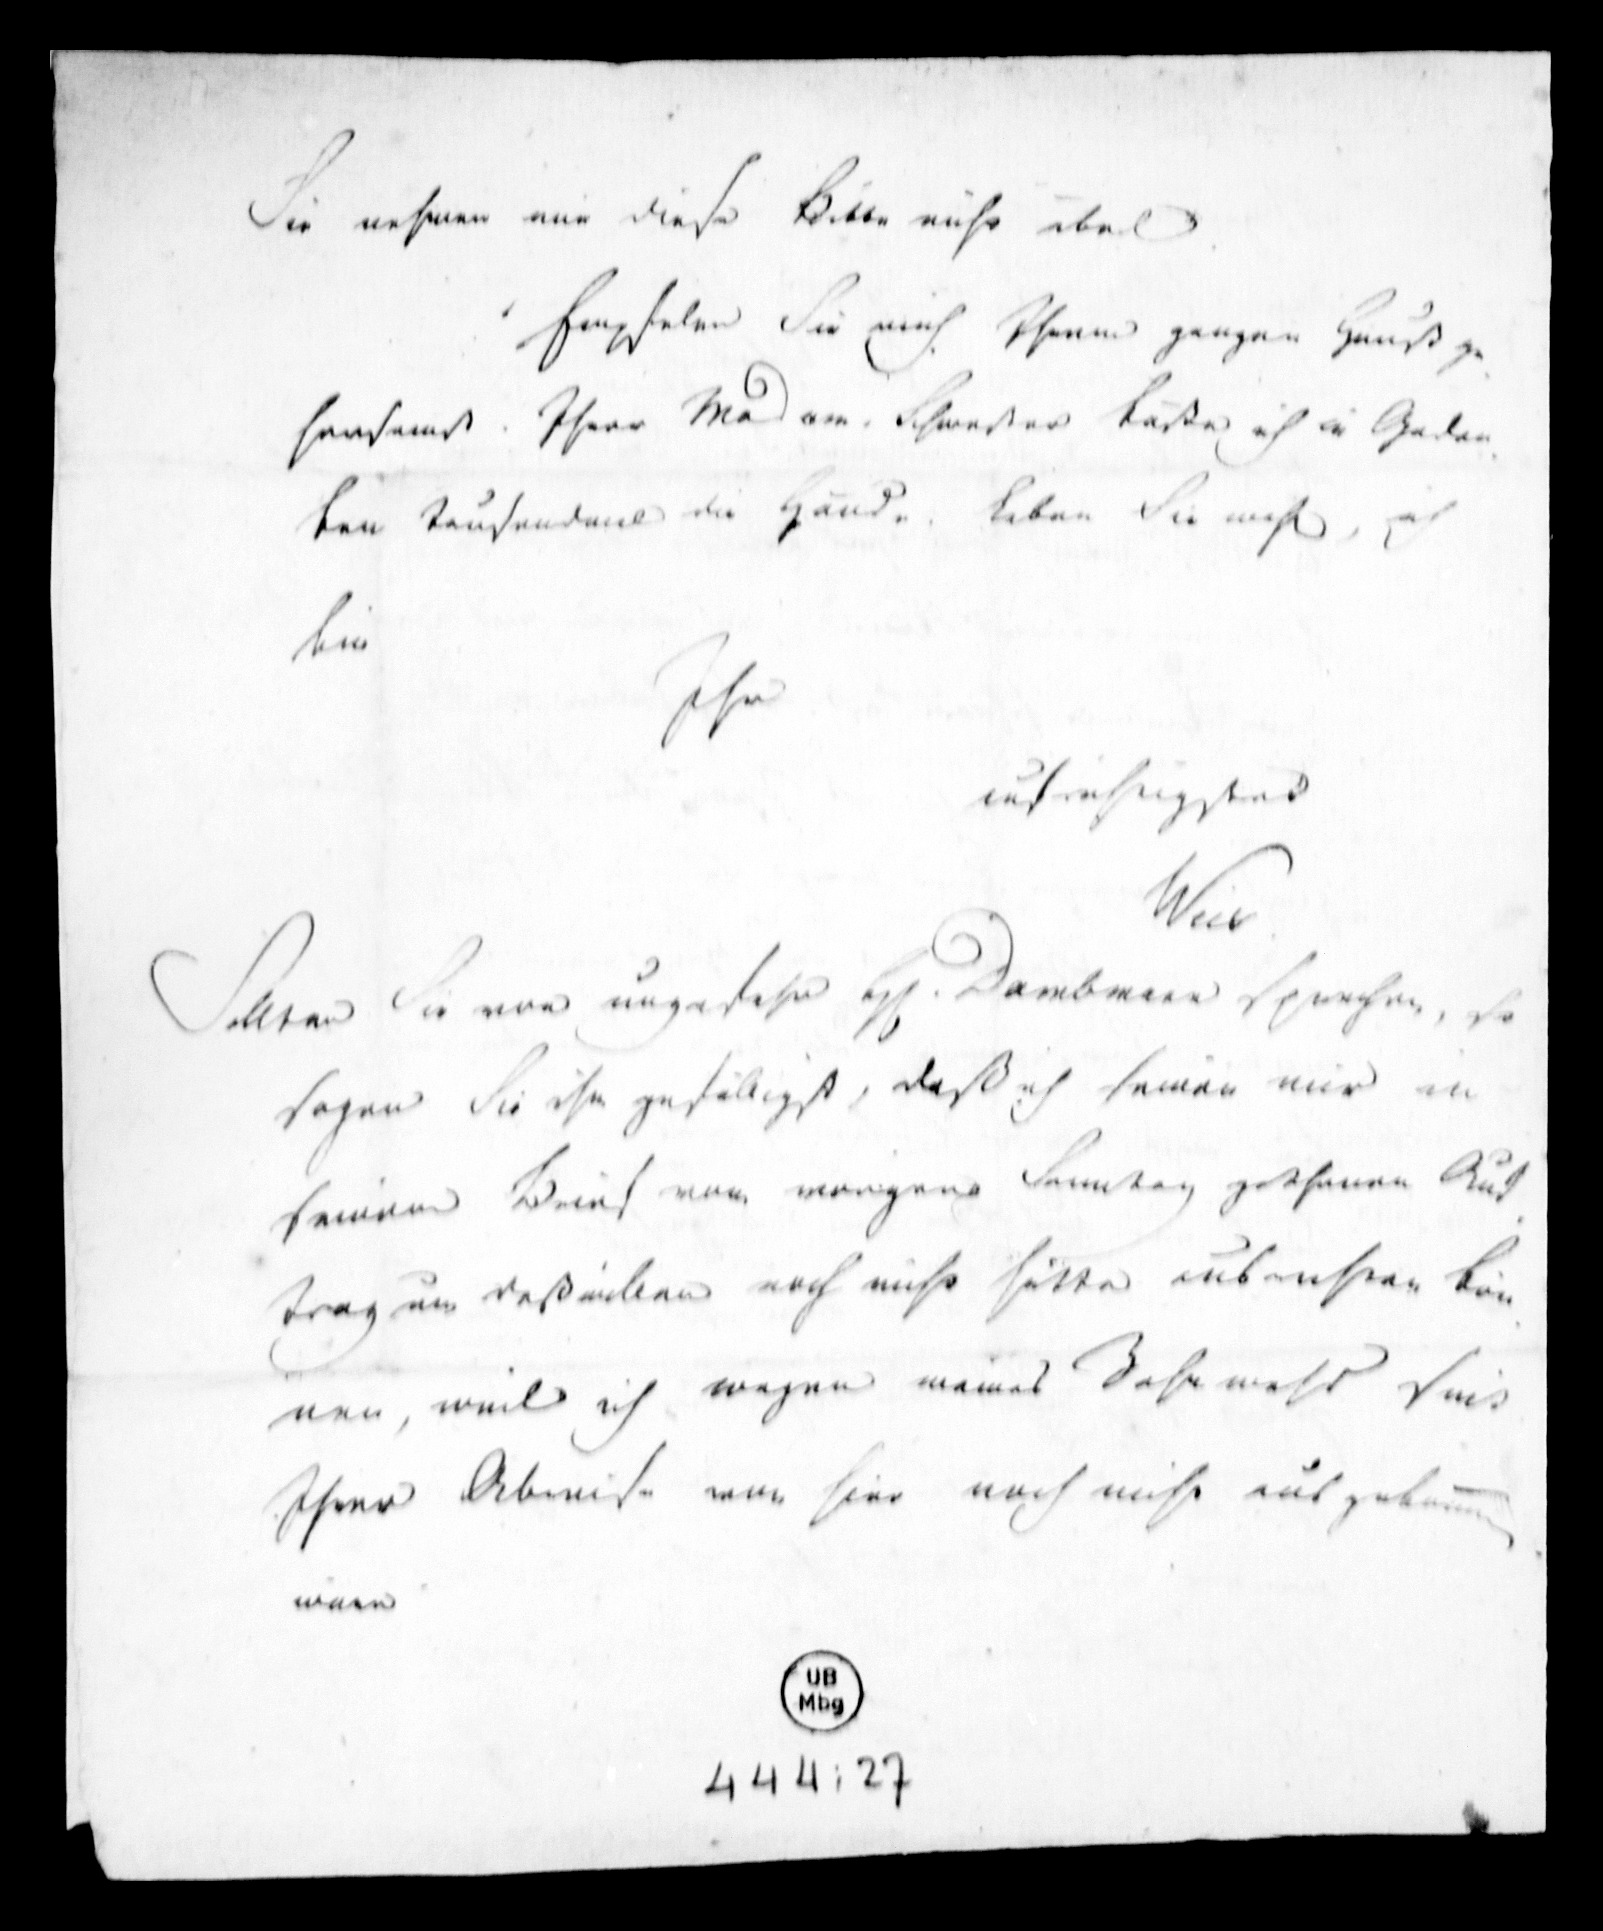 Sie nehmen mir diese Bitte nicht übel.
Empfelen Sie mich Ihrem ganzen Hauß ge-
horsamst. Ihrer Madam. Schwester küße ich in Gedan-
ken tausendmal die Hände. Leben Sie wohl, ich
bin
Ihr
aufrichtigster
Sollten Sie von ungefehr H. sprechen, so
sagen Sie ihm gefälligst, daß ich seinen mir in
seinem Brief vom vorigen Sonntag gethanen Auf-
trag um deßwillen noch nicht hätte ausrichten kön-
nen, weil ich wegen meines Zahnwehs seit
Ihrer Abreise von hier noch nicht ausgekommen
wäre
UB
Mbg
444:27